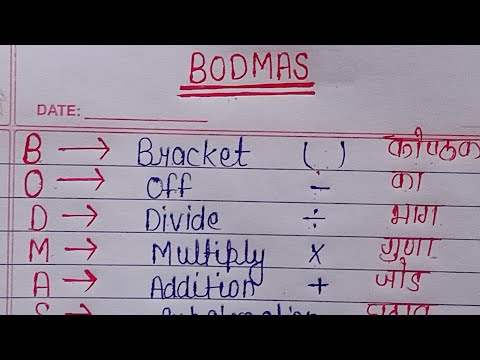 BODMAS
DATE:
B → Bracket ( ) कोष्ठक
O → Off ÷ का
D → Divide ÷ भाग
M → Multiply × गुणा
A → Addition + जोड
S →